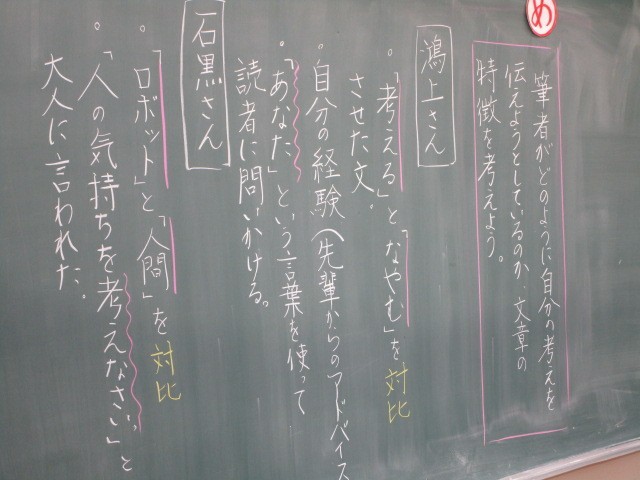 め
筆者がどのように自分の考えを
伝えようとしているのか、文章の
特徴を考えよう。
鴻上さん
・「考える」と「なやむ」を対比
させた文。
・自分の経験(先輩からのアドバイス
・「あなた」という言葉を使って
読者に問いかける。
石黒さん
・「ロボット」と「人間」を対比
・「人の気持ちを考えなさい」と
大人に言われた。